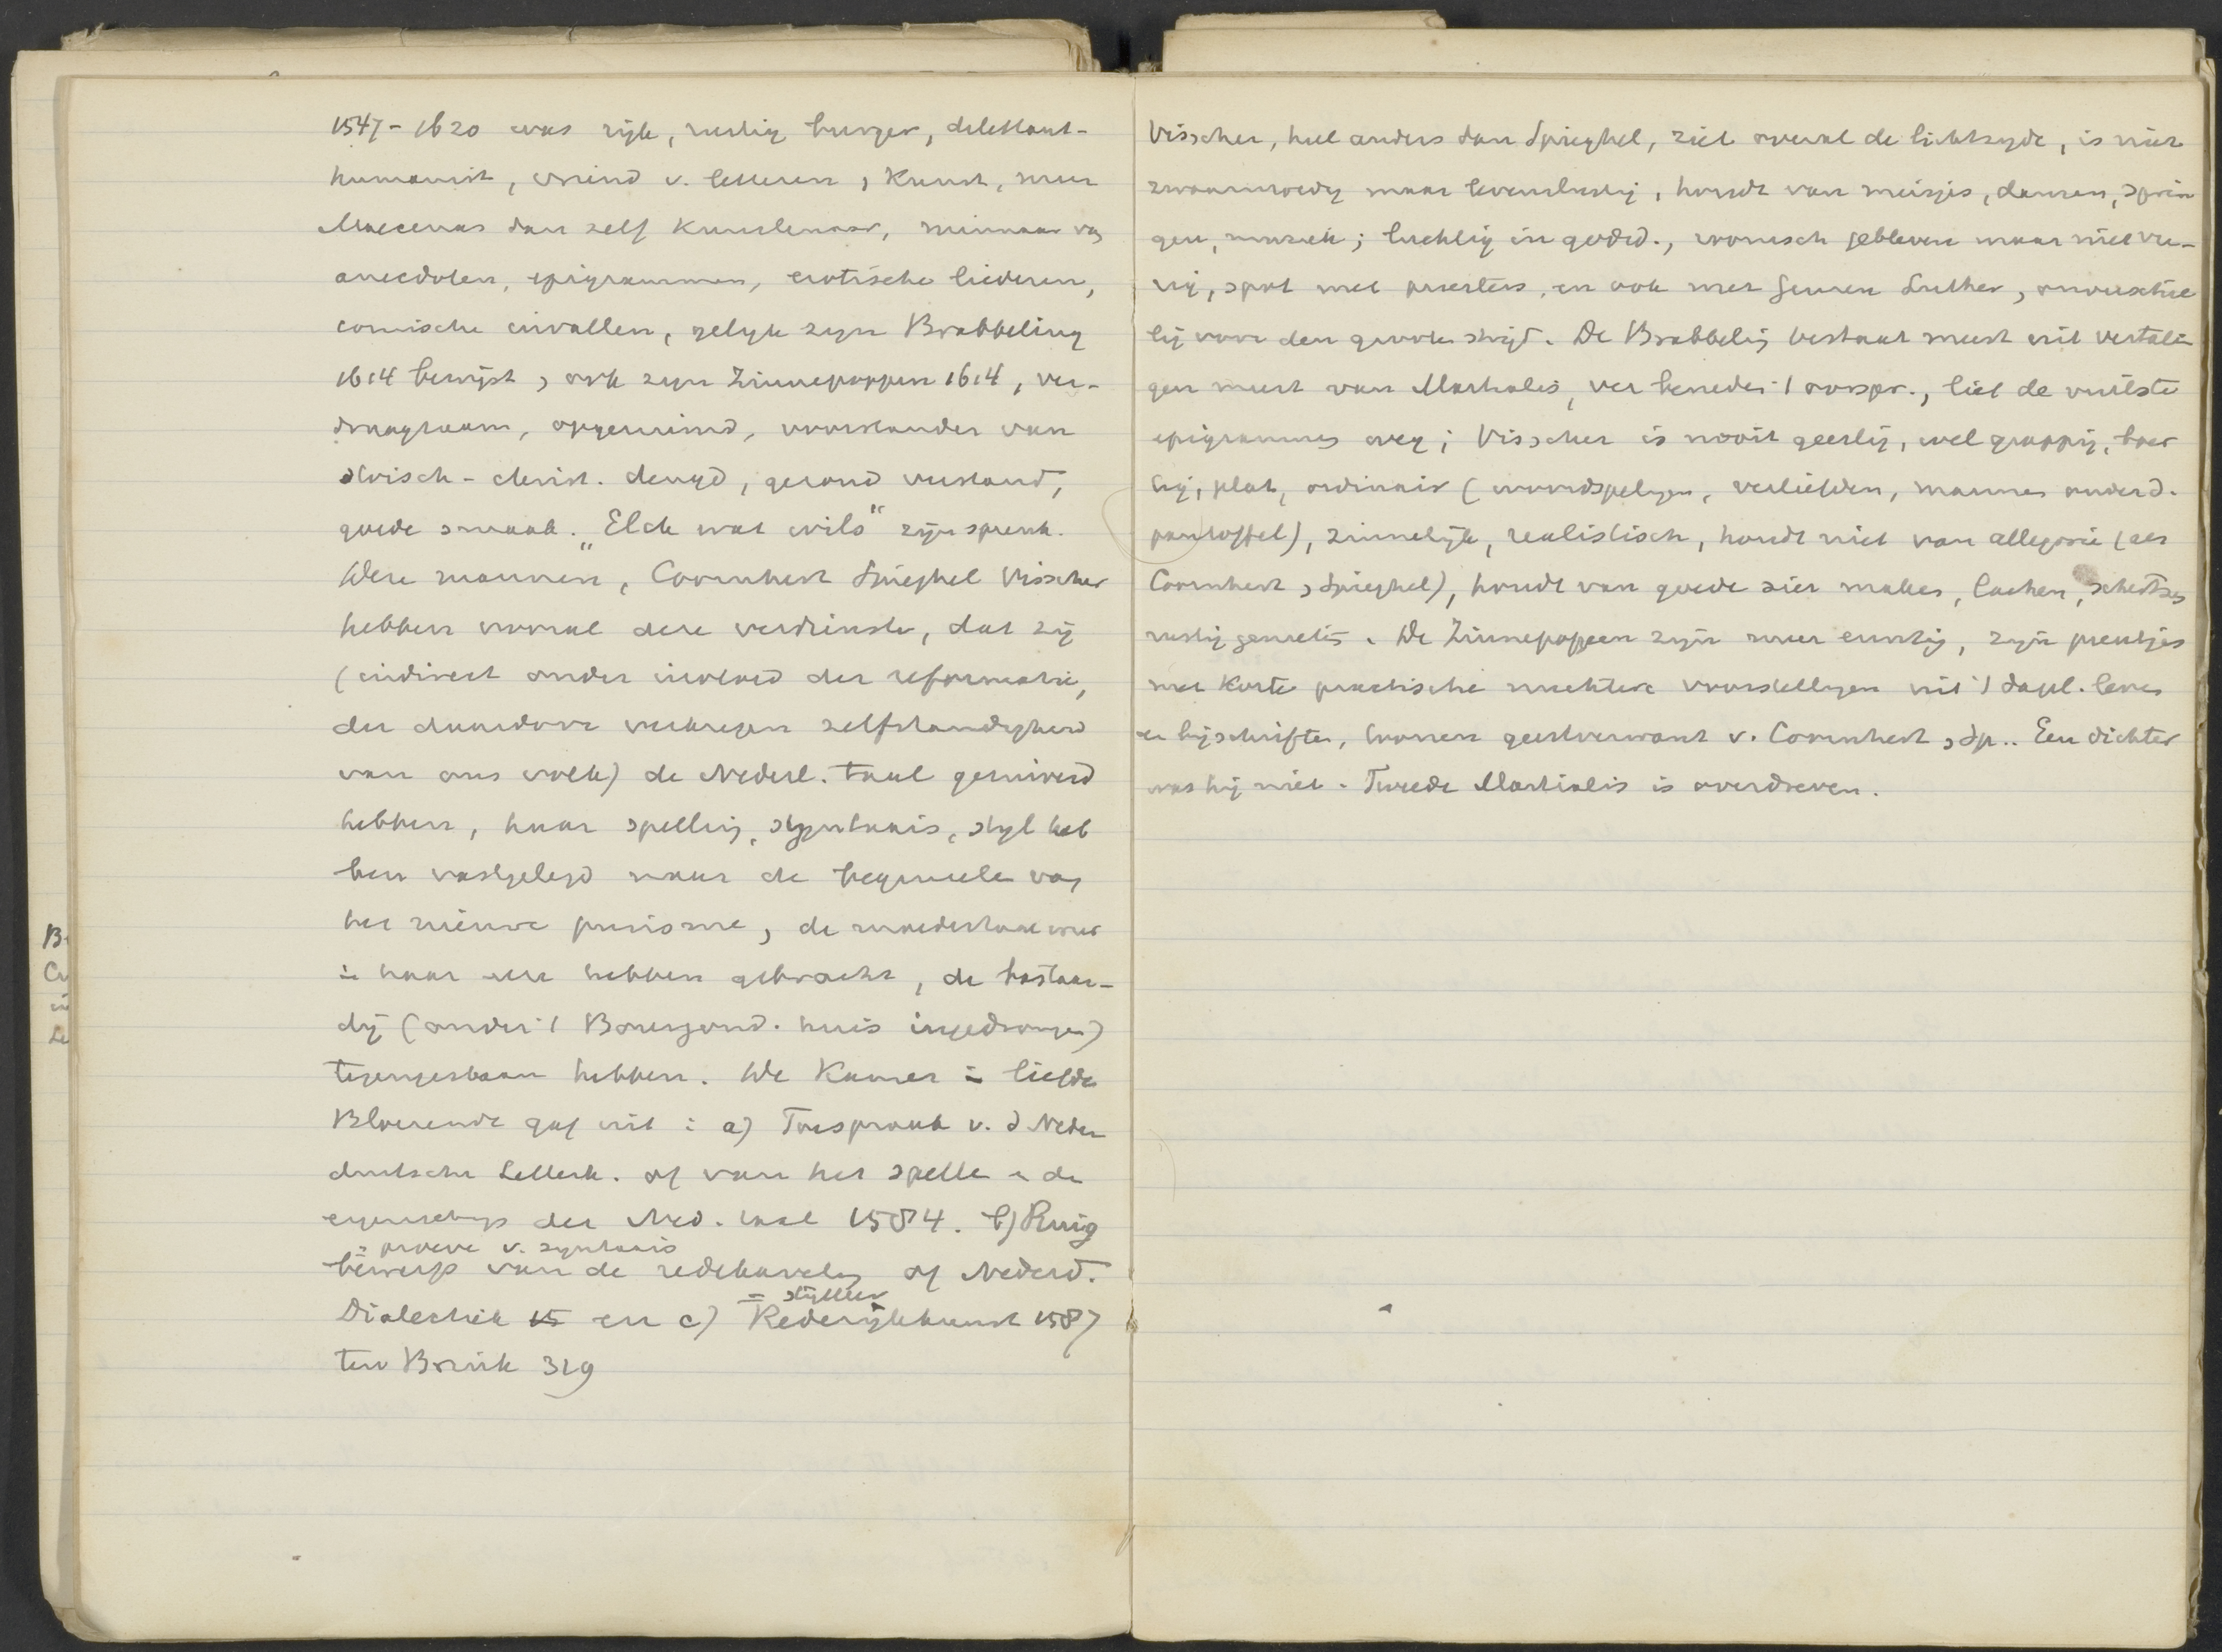 1547-1620 was rijk, rustig burger, dilettant-
humanist, vriend v. letteren, Kunst, meer
Maecenas dan zelf Kunstenaar, minnaar van
anecdoten, epigrammen, erotische liederen,
comische invallen, gelyk zyn Brabbeling
1614 bewijst, ook zyn Zinnepoppen 1614, ver-
draagzaam, opgeruimd, voorstander van
stoisch-christ. deugd, gezond verstand,
goede smaak. "Elck wat wils" zijn spreuk.
Deze mannen, Coornhert Spieghel Visscher
hebben vooral deze verdienste, dat zij
(indirect onder invloed der reformatie,
der daardoor verkregen zelfstandigheid
van ons volk) de Nederl. taal gezuiverd
hebben, haar spelling, syntaxis, styl heb
ben vastgelegd naar de beginselen van
het nieuwe purisme, de moedertaal weer
in haar eer hebben gebracht, de bastaar-
dij (onder 't Bourgond. huis ingedrongen)
tegengestaan hebben. De Kamer in liefde
Bloeiende gaf uit: a) Tweespraak v. d Neder
duitsche Letterk. of van het spellen en de
eigenschap der Ned. taal 1584. b) Ruig
= proeve v. syntaxis
bewerp van de redekaveling of Nederd.
= stijlleer
Dialectiek 15 en c) Rederijkkunst 1587
ten Brink 319
Visscher, heel anders dan Spieghel, ziet overal de lichtzyde, is niet
zwaarmoedig maar levenslustig, houdt van meisjes, dansen, sprin
gen, muziek; luchtig in godsd., roomsch gebleven maar niet vu-
rig, spot met priesters, en ook met Luther, onverschil
lig voor den grooten strijd. De Brabbeling bestaat meest uit vertalin
gen meest van Martialis, ver beneden 't oorspr., liet de vuilste
epigrammen weg; Visscher is nooit geestig, wel grappig, boer
tig, plat, ordinair (woordspelingen, verliefden, mannen onder d.
pantoffel), zinnelijk, realistisch, houdt niet van allegorie (als
Coornhert, Spieghel), houdt van goede sier maken, lachen, schertsen
rustig genieten. De Zinnepoppen zyn meer ernstig, zyn prentjes
met korte practische nuchtere voorstellingen uit 't dagl. leven
en bijschriften, toonen geestverwant v. Coornhert, Sp.. Een dichter
was hij niet. Tweede Martialis is overdreven.
B
Cu
in
Le